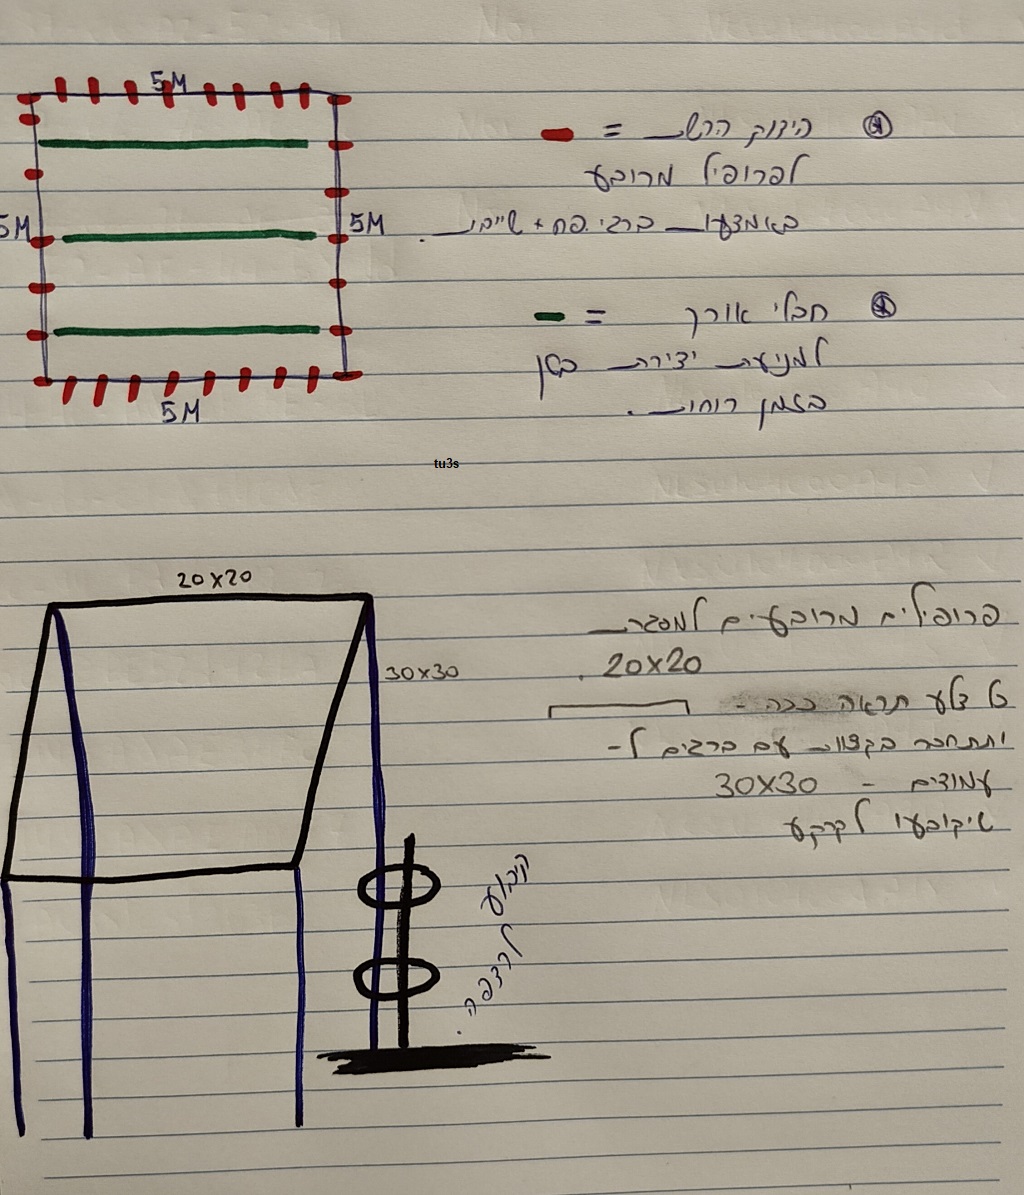 5M
הידוק הרשת =
לפרופיל מרובע
באמצעות ברגי פח + שייבות.
5M
5M
חבלי אורך =
למניעת יצירת בטן
בזמן רוחות.
5M
tu3s
20x20
פרופילים מרובעים למסגרת
20x20.
30x30
כל צלע תראה ככה -
ותתחבר בקצוות עם ברגים ל-
עמודים - 30x30
שיקובעו לקרקע
קבוע
לרצפה.